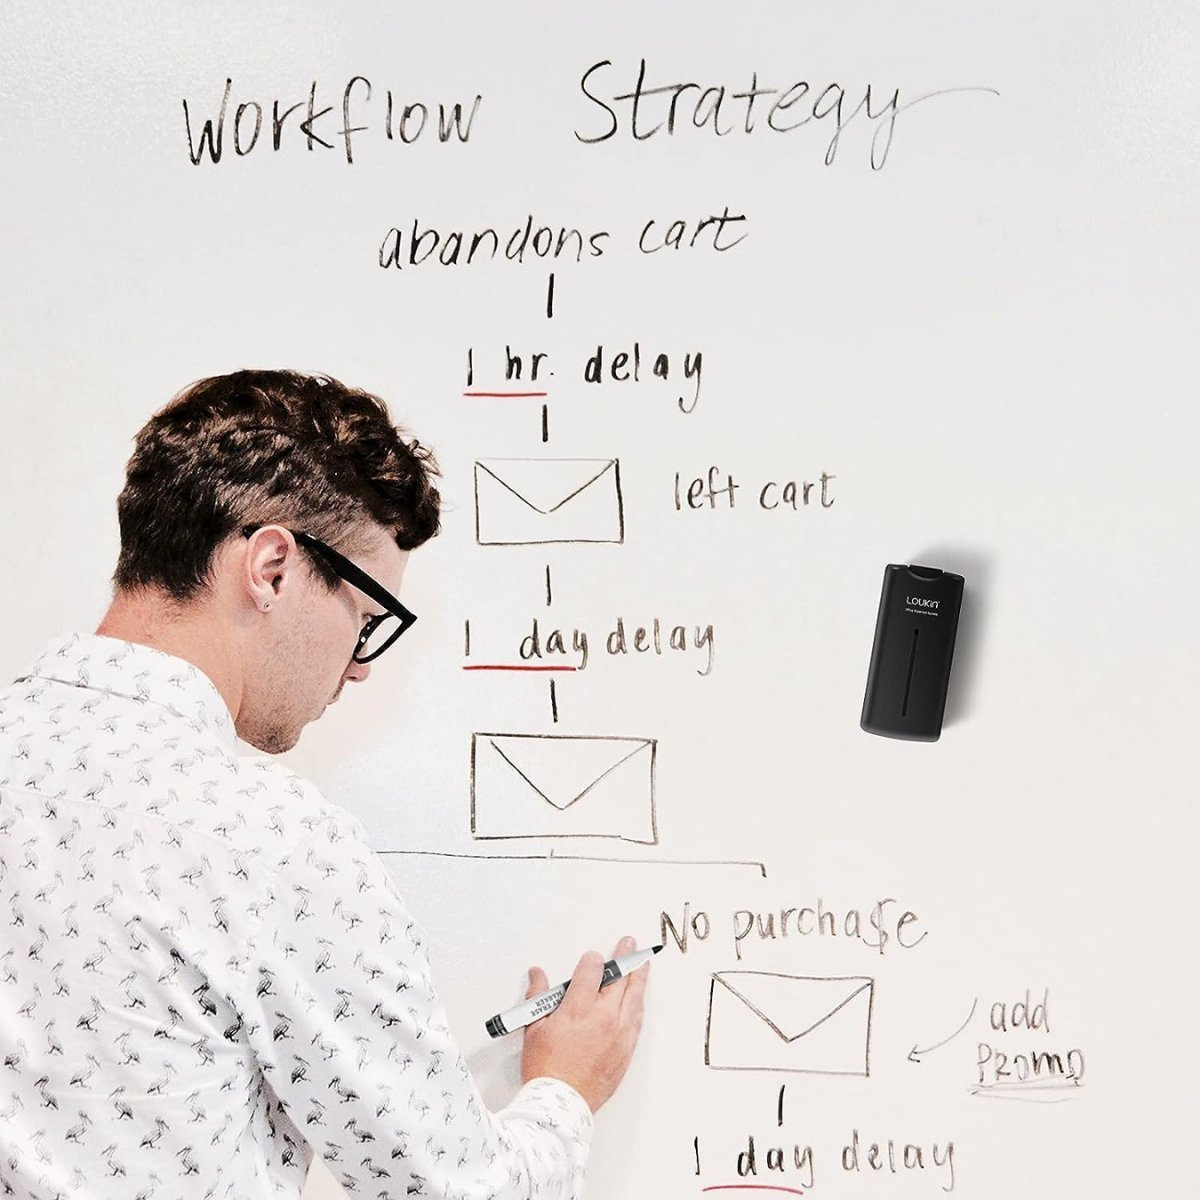 Workflow Strategy
abandons cart
1 hr. delay
left cart
LOUKIN
1 day delay
No purcha$e
ERASE
MARKER
add
PROMO
1 day delay